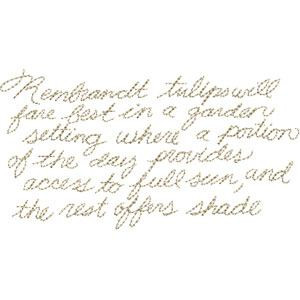 Rembrandt tulips will
fare best in a garden
setting where a portion
of the day provides
access to full sun, and
the rest offers shade